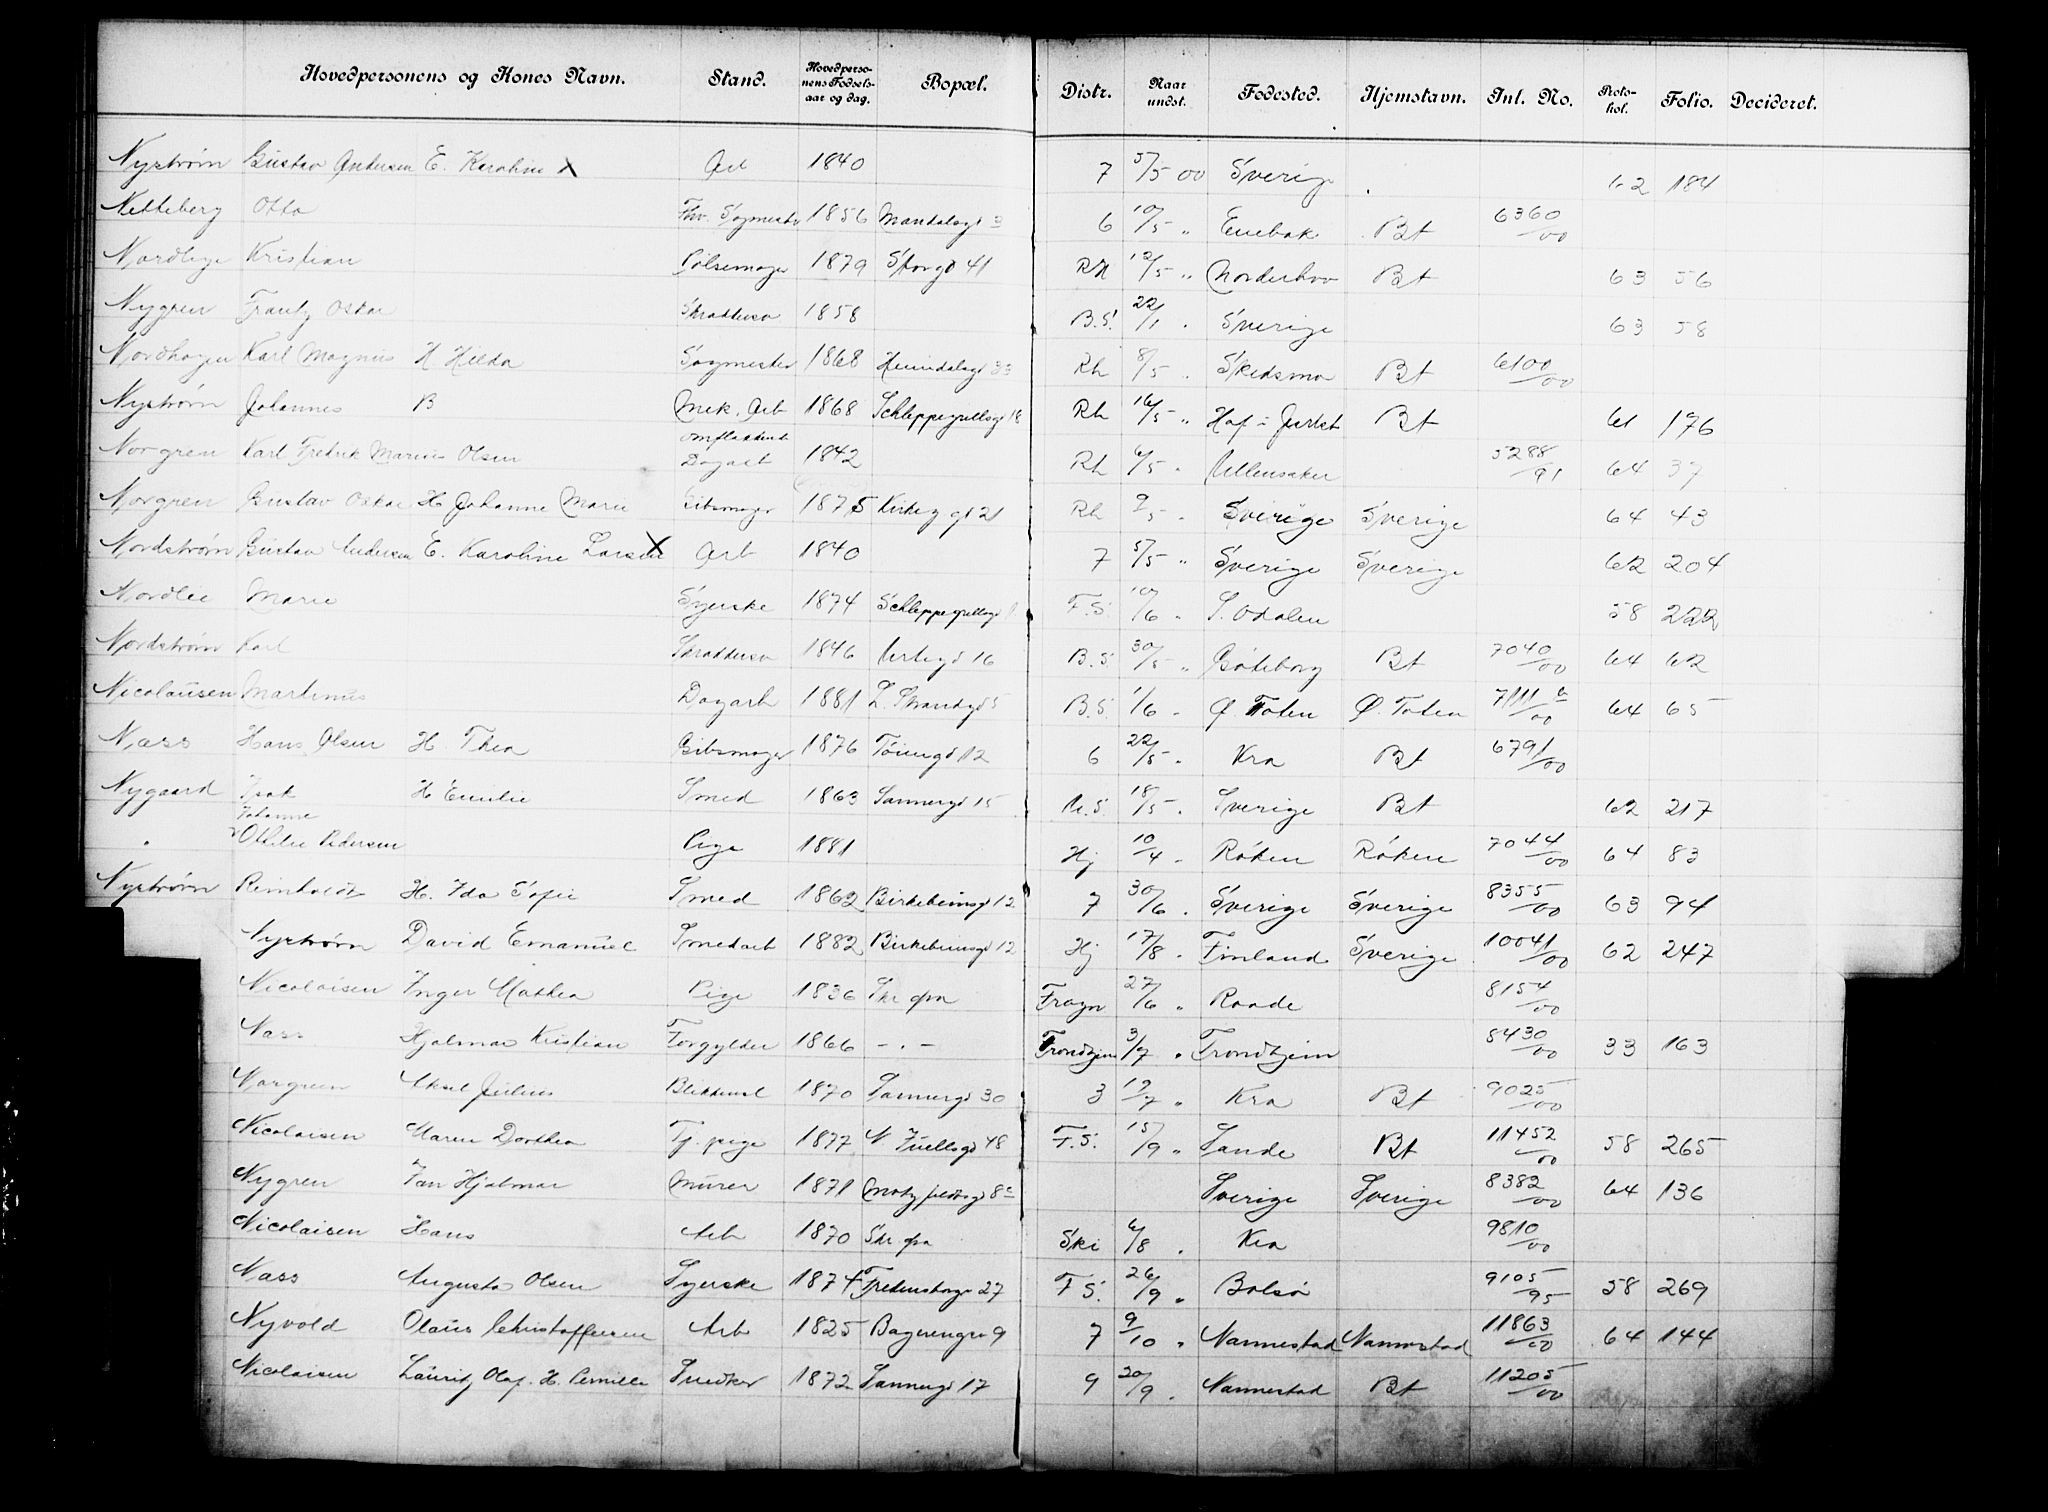 Hovedpersonens og Kones Navn. Stand. Hovedpersonens Fødselsaar og dag. Bopæl. Distr. Naar undst. Fødested. Hjemstavn. Inl. No. Protokol. Folio. Decideret.
Nystrøm Gustav Andersen E. Karoline X Arb 1840 7 5/5 00 Sverige 62 184
Netteberg Otto Fhv. Sagmester 1856 Mandalsgd 3 6 10/5 " Enebak Bt 6360/00
Nordlige Kristian Pølsemager 1879 Storgd 41 RH 12/5 " Norderhov Bt 63 56
Nygren Frantz Oskar Skrædersv 1858 B.S. 22/1 " Sverige 63 58
Nordhagen Karl Magnus H Hilda Sagmester 1868 Heimdalsgd 33 Rh 8/5 " Skedsmo Bt 6100/00
Nystrøm Johannes B Mek. Arb 1868 Schleppegrellsgd 18 Rh 16/5 " Hof i Bt 61 176
Norgren Karl Fredrik Marius Olsen Dagarb 1842 Rh 6/5 " Ullensaker 5288/91 64 37
Norgren Gustav Oskar H Johanne Marie Gibsmager 1875 Kirkeg gd 21 Rh 9/5 " Sverige Sverige 64 43
Nordstrøm Gustav Andersen E. Karoline Larsen X Arb 1840 7 5/5 " Sverige Sverige 62 204
Nordlie Marie Syerske 1874 Schleppegrellsgd 1 F.S. 10/6 " S. Odalen 58 222
Nordstrøm Karl Skrædersv 1846 Urtegd 16 B.S. 30/5 " Gøteborg Bt 7040/00 64 62
Nicolaisen Martinus Dagarb 1881 L. Strandgd 5 B.S. 1/6 " Ø. Toten Ø. Toten 7111 b/00 64 65
Næss Hans Olsen H. Thea Gibsmager 1876 Tøiengd 12 6 22/5 " Kra Bt 6791/00
Nygaard Isak H Emilie Smed 1863 Sannergd 15 U.S. 18/5 " Sverige Bt 62 217
Johanne
" Othilie Pedersen Pige 1881 Hj 10/4 " Røken Røken 7044/00 64 83
Nystrøm Reinholdt H. Ida Sofie Smed 1862 Birkebeinsgd 12 7 30/6 " Sverige Sverige 8355/00 63 94
Nystrøm David Emanuel Smedarb 1882 Birkebeinsgd 12 Hj 17/8 " Finland Sverige 10041/00 62 247
Nicolaisen Inger Mathea Pige 1836 Skr fra Frogn 27/6 " Raade 8154/00
Næss Hjalmar Kristian Forgylder 1866 - . - Trondhjem 3/7 " Trondhjem 8430/00 33 163
Norgreen Aksel Julius Blikkensl 1870 Sannergd 30 3 19/7 " Kra Bt 9025/00
Nicolaisen Maren Dorthea Tj. pige 1877 N Juellsgd 48 F.S. 15/9 " Sande Bt 11452/00 58 265
Nygren Jan Hjalmar Murer 1871 Motzfeldtsgd 8 c Sverige Sverige 8382/00 64 136
Nicolaisen Hans Arb 1870 Skr fra Ski 6/8 " Kra 9810/00
Næss Augusta Olsen Syerske 1874 Fredensborgv 27 F.S. 26/9 " Bolsø 9105/95 58 269
Nyvold Olaus Christoffersen Arb 1825 Bagerengv 9 7 9/10 " Nannestad Nannestad 11863/00 64 144
Nicolaisen Lauritz Olaf. H. Pernille Snedker 1872 Sannergd 17 9 20/9 " Nannestad Bt 11205/00